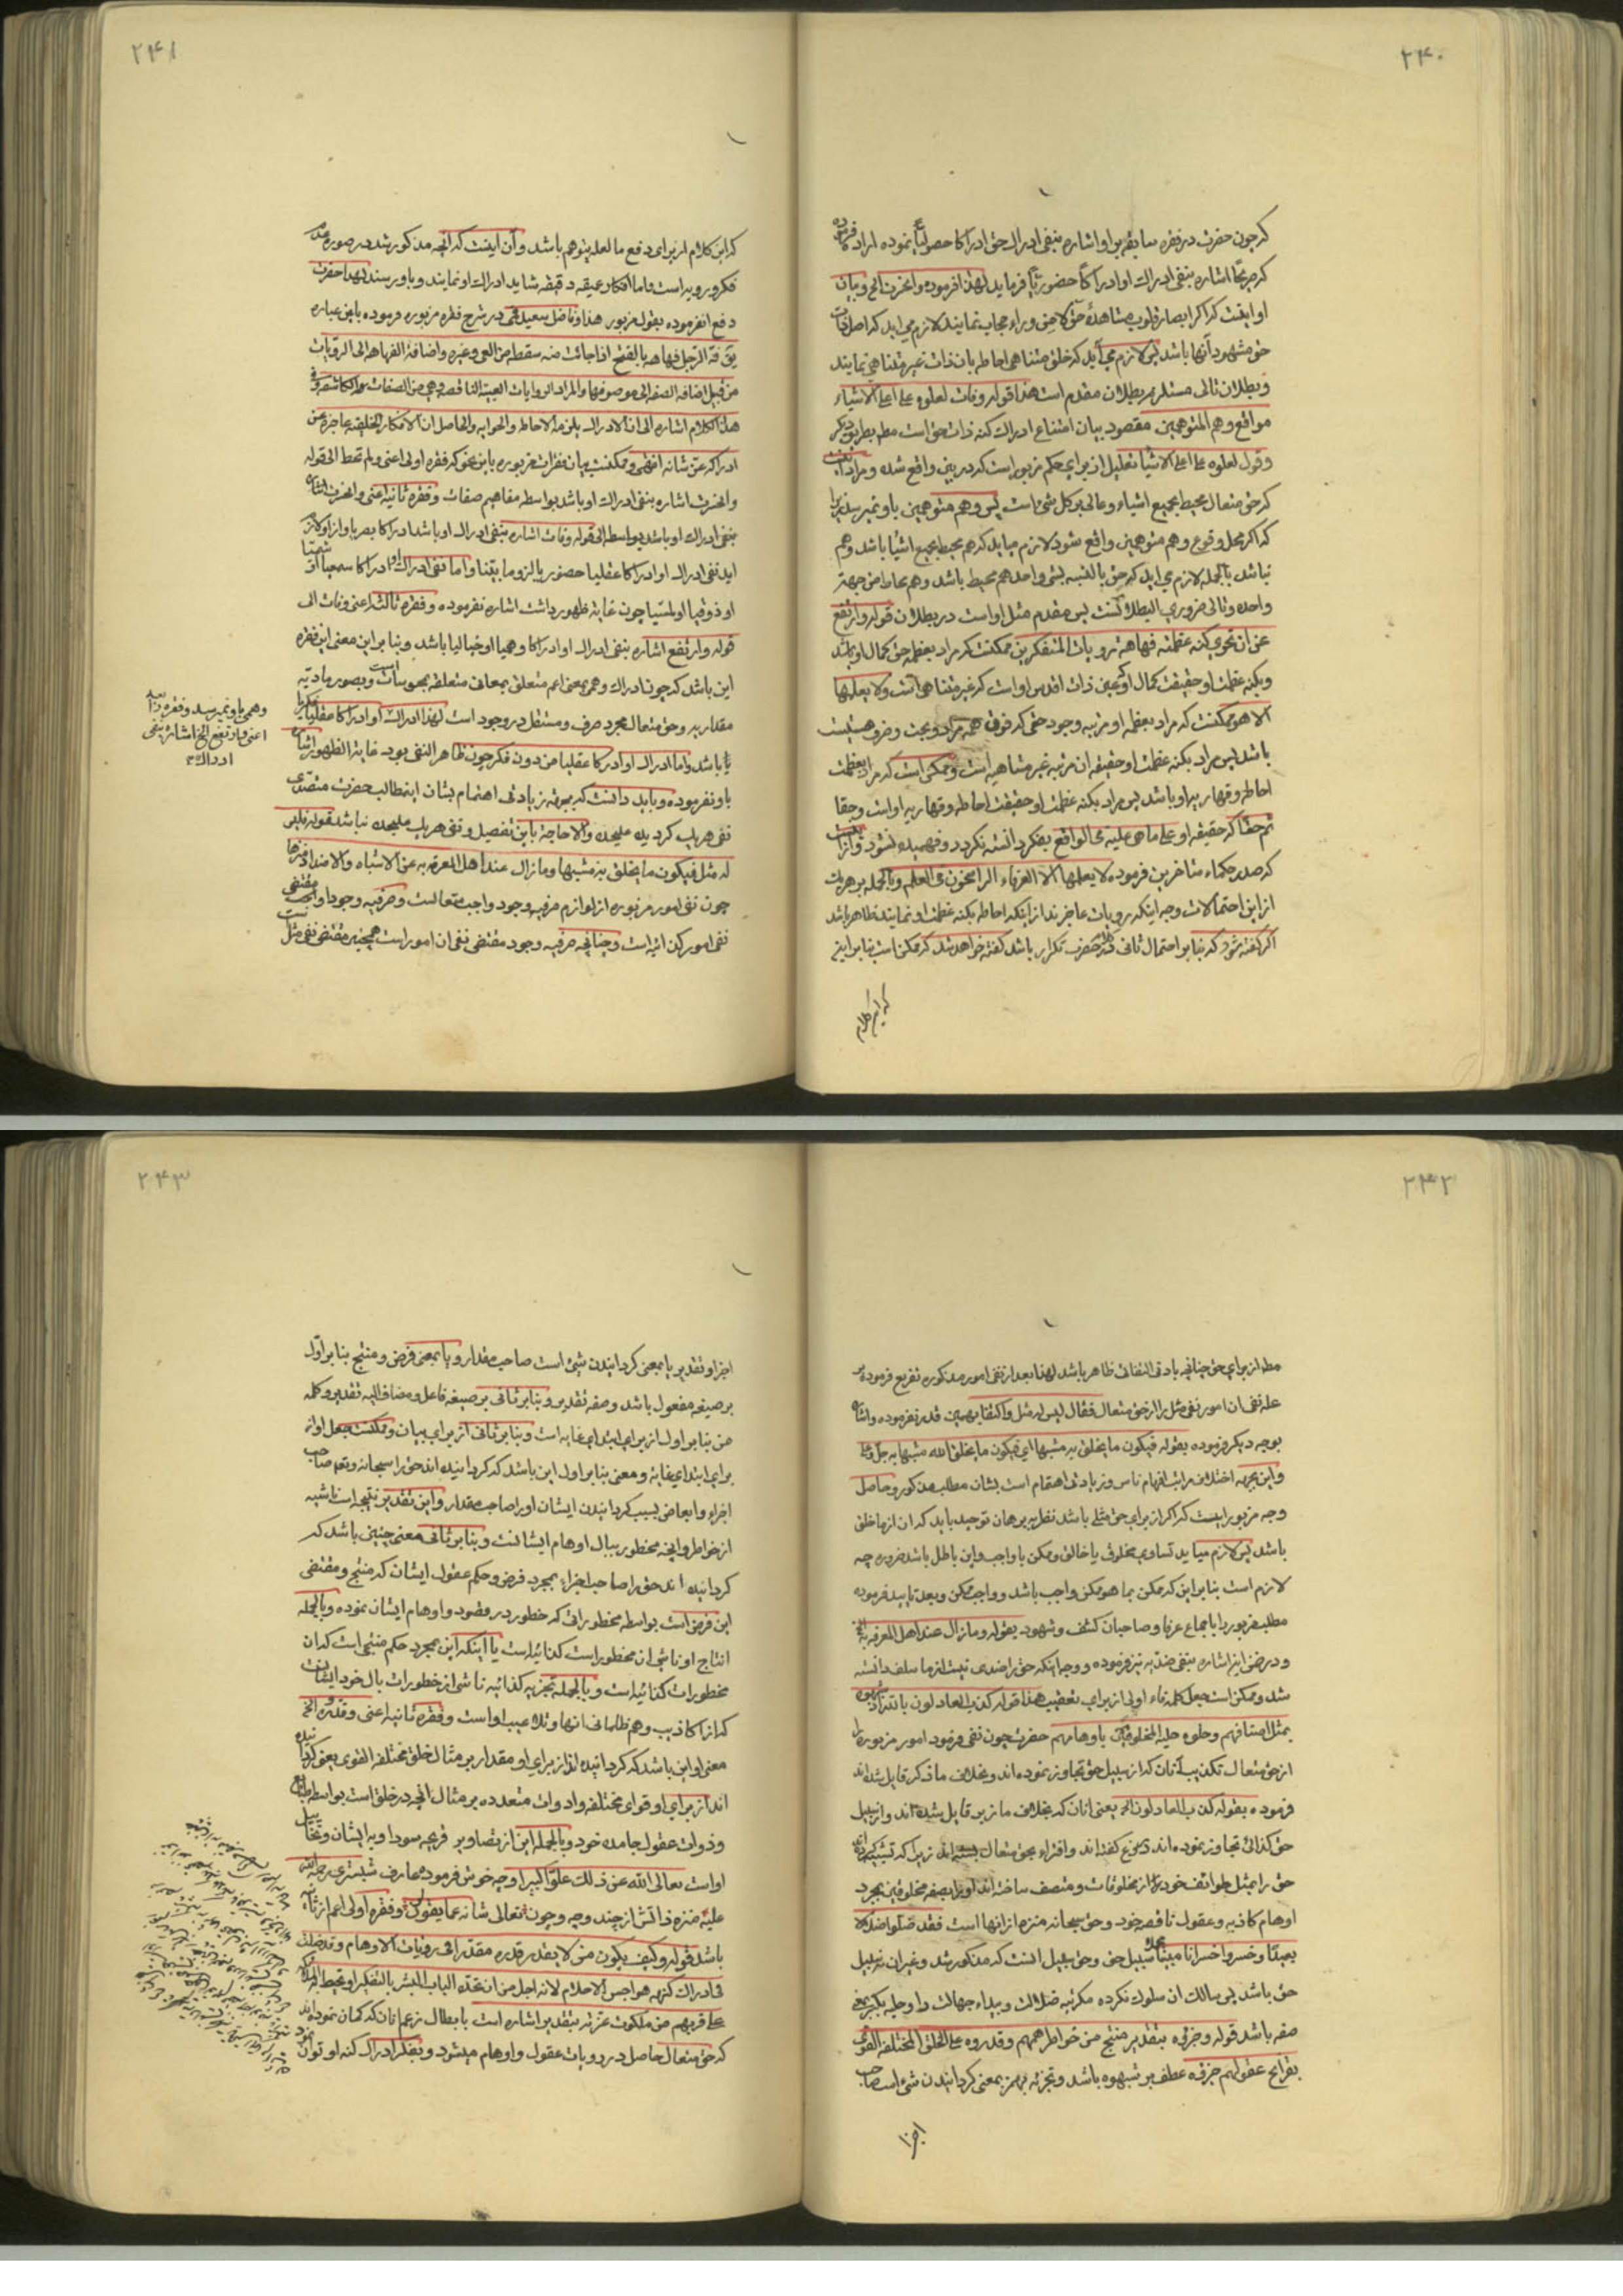 ۲۴۰
که چون حضرت در فقره سابقه بر او اشاره بنفی ادراک حق ادراکا حصولیا نموده اراده فرموده
که صریحا اشاره بنفی ادراک او ادراکا حضوریا فرماید لهذا فرموده وانحزن الخ و بیان
او اینست که اگر ابصار قلوب مشاهدهٔ حق کا من وراء حجاب نمایند لازم می آید که اصل ذات
حق مشهود آنها باشد پس لازم می آید که خلق متناهی احاطه بان ذات غیر متناهی نمایند
و بطلان تالی مستلزم بطلان مقدم است هذا قوله وفات لعلوه علی اعلی الاشیاء
مواقع وهم المتوهمین مقصود بیان امتناع ادراک کنه ذات حق است مط بطریق دیگر
وقول لعلوه علی اعلی الاشیا تعلیل از برای حکم مزبور است که در بین واقع شده و مراد آنست
که حق متعال محیط بجمیع اشیاء وعالی بر کل شئ است پس وهم متوهمین باو نمیرسد زیرا
که اگر محل وقوع وهم متوهمین واقع شود لازم میاید که هم محیط بجمیع اشیا باشد وهم
نباشد بالجمله لازم می اید که حق بالنسبه بشئ واحد هم محیط باشد وهم محاط من جهة
واحده وتالی ضروری البطلانست پس مقدم مثل او است در بطلان قوله وارتفع
عن ان تحوی کنه عظمته فهاهة رویات المتفکرین ممکنست که مراد بعظمه حق کمال او باشد
وبکنه عظمت او حقیقت کمال او که عین ذات اقدس او است که غیر متناهی است ولا یعلمها
الا هو وممکنست که مراد بعظمه او مرتبه وجود حقی که فوق همه مراد و بحث و صرف هستیست
باشد پس مراد بکنه عظمت او حقیقه ان مرتبه غیر متناهیه است وممکن است که مراد بعظمت
احاطه وقهاریه او باشد پس مراد بکنه عظمت او حقیقت احاطه وقهاریه او است وحقا
ثم حقا که حقیقه او علی ما هی علیه فی الواقع بفکر دانسته نگردد و فهمیده نشود و از آنست
که صدر حکماء متاخرین فرموده لا یعلمها الا العرفاء الراسخون فی العلم وبالجمله بر هریک
از این احتمالات وجه اینکه رویات عاجزند از اینکه احاطه بکنه عظمت او نمایند ظاهر باشد
اگر گفته شود که بنابر احتمال ثانی کلام حضرت تکرار باشد گفته خواهد شد که ممکن است بنابراین
که این کلام
۲۴۱
که این کلام از برای دفع ما لعله یتوهم باشد و آن اینست که انچه مذکور شد در صوره عدم
فکر و رویه است واما افکار عمیقه دقیقه شاید ادراک او نمایند و باو رسند لهذا حضرت
دفع انفرموده بقول مزبور هذا وفاضل سعید قمی در شرح فقره مزبوره فرموده باین عباره
یق فه الرجل فهاهة بالفتح اذا جائت منه سقطه من العی وغیره واضافة الفهاهه الی الرویات
من قبیل اضافه الصفه الی موصوفها والمراد الرویات العییة الناقصه وهی من الصفات الکاشفه وفی
هذا الکلام اشاره الی ان الادراک یلزمه الاحاطه والحوایه والحاصل ان الافکار الخلقیه عاجزة عن
ادراکه عزّ شانه انتهی وممکنست بیان فقرات مزبوره باین نحو که فقره اولی اعنی ولم تحط الی قوله
وانحزن اشاره بنفی ادراک او باشد بواسطه مفاهیم صفات وفقره ثانیه اعنی وانحزن اشاره
بنفی ادراک او باشد بواسطه الی قوله وفات اشاره بنفی ادراک او باشد ادراکا بصریا واز او لازم
اید نفی ادراک او ادراکا عقلیا حضوریا لزوما بینا واما نفی ادراک او ادراکا سمعیا او شمیّا
او ذوقیا او لمسیا چون غایة ظهور داشت اشاره نفرموده وفقره ثالثه اعنی وفات الی
قوله وارتفع اشاره بنفی ادراک او ادراکا وهمیا او خیالیا باشد وبنا بر این معنی این فقره
این باشد که چون ادراک وهم بمعنی اعم متعلق بمعانی متعلقه بمحسوسات است وبصور مادیه
مقداریه وحق متعال مجرد صرف ومستقل در وجود است لهذا ادراک او ادراکا عقلیا فکریا
یا باشد واما ادراک او ادراکا عقلیا من دون فکر چون ظاهر النفی بود غایة الظهور اشاره
باو نفرموده و باید دانست که بجهة زیادتی اهتمام بشان اینمطالب حضرت متصدی
نفی هریک گردیده علیحده والا حاجة باین تفصیل ونفی هریک علیحده نباشد قوله فلیس
له مثل فیکون ما یخلق به مشبها وما زال عند اهل المعرفه به عن الاشباه والاضداد منزها
چون نفی امور مزبوره از لوازم صرفیه وجود واجب متعالست وصرفیه وجود او مقتضی
نفی امور کذائیه است وچنانچه صرفیه وجود مقتضی نفی ان امور است همچنین مقتضی نفی مثل
وهمی باو نمیرسد وفقره رابعه
اعنی وارتفع الخ اشاره بنفی
ادراک
۲۴۲
مط از برای حق چنانچه بادنی التفاتی ظاهر باشد لهذا بعد از نفی امور مذکوره تفریع فرموده بر
علة نفی ان امور نفی مثل را از حق متعال فقال لیس له مثل واکتفا بهمین قدر نفرموده واشاره
بوجه دیگر فرموده بقوله فیکون ما یخلق به مشبها ای فیکون ما یخلق الله مشبها به جل وعلا
واین بجهة اختلاف مراتب افهام ناس وزیادتی اهتمام است بشان مطلب مذکور وحاصل
وجه مزبور اینست که اگر از برای حق مثلی باشد نظر به برهان توحید باید که ان از ما خلق
باشد پس لازم میاید تساوی مخلوق با خالق وممکن با واجب واین باطل باشد ضرورة چه
لازم است بنابراین که ممکن بما هو ممکن واجب باشد وواجب ممکن وبعد تایید فرموده
مطلب مزبور را باجماع عرفا وصاحبان کشف وشهود بقوله وما زال عند اهل المعرفه به الخ
ودر ضمن این اشاره بنفی ضد نیز فرموده ووجه اینکه حق را ضدی نیست از ما سلف دانسته
شد وممکن است جعل کلمه فاء اولی از برای تعقیب هذا قوله کذب العادلون بالله اذ شبهوه
بمثل اصنافهم وحلوه حلیة المخلوقین باوهامهم حضرت چون نفی فرمود امور مزبوره را
از حق متعال تکذیب آنان که از سبیل حق تجاوز نموده اند وبخلاف ما ذکر قایل شده اند
فرموده بقوله کذب العادلون الخ یعنی انان که بخلاف ما زبر قایل شده اند واز سبیل
حق کذائی تجاوز نموده اند دروغ گفته اند وافتراء بحق متعال بسته اند زیرا که تشبیه کرده اند
حق را بمثل طوائف خود را از مخلوقات ومتصف ساخته اند او را بصفه مخلوقین بمجرد
اوهام کاذبه وعقول ناقصه خود وحق سبحانه منزه از انها است فقد ضلوا ضلالا
بعیدا وخسروا خسرانا مبینا سبیل حق وحق سبیل انست که مذکور شد وغیر ان نه سبیل
حق باشد پس سالک ان سلوک نکرده مگر تیه ضلالت وبیداء جهالت را وحلیه بکسر بمعنی
صفه باشد قوله وجزوه بتقدیر منتج من خواطر هممهم وقدروه علی الخلق المختلفه القوی
بقرایح عقولهم جزوه عطف بر شبهوه باشد وتجزئه بهمز بمعنی گردانیدن شئ است صاحب
اجزا
۲۴۳
اجزا وتقدیر یا بمعنی گردانیدن شئ است صاحب مقدار ویا بمعنی فرض ومنتج بنابر اول
بر صیغه مفعول باشد وصفه تقدیر وبنابر ثانی بر صیغه فاعل ومضاف الیه تقدیر وکلمه
من بنابر اول از برای ابتدای غایه است وبنابر ثانی از برای بیان وممکنست جعل او از
برای ابتدای غایة ومعنی بنابر اول این باشد که گردانیده اند حق را سبحانه وتعالی صاحب
اجزاء وابعاض بسبب گردانیدن ایشان او را صاحب مقدار واین تقدیر نتیجه است ناشیه
از خواطر وانچه مخطور ببال اوهام ایشانست وبنابر ثانی معنی چنین باشد که
گردانیده اند حق را صاحب اجزاء بمجرد فرض وحکم عقول ایشان که منتج ومقتضی
این فرض است بواسطه مخطوراتی که خطور در قصود واوهام ایشان نموده وبالجمله
انتاج او ناشی ان مخطور است کذائیه است یا اینکه این بمجرد حکم منتجی است که ان
مخطورات کذائیه است وبالجمله تجزیه کذائیه ناشی از خطورات بال خود ایشانست
که از اکاذیب وهم ظلمانی انها وتلاعیب او است وفقره ثانیه اعنی وقدروه الخ
معنی او این باشد که گردانیده اند از برای او مقدار بر مثال خلق مختلفه القوی یعنی گردانیده
اند از برای او قوای مختلفه وادوات متعدده بر مثال انچه در خلق است بواسطه طبایع
وذوات عقول جامده خود وبالجمله این از تصاویر قریحه سوداویه ایشان وتخییل
او است تعالی الله عن ذلک علوا کبیرا وچه خوش فرموده عارف شبستری رحمة الله
علیه منزه ذاتش از چند وچه وچون تعالی شانه عما یقولون وفقره اولی اعم از ثانیه
باشد قوله وکیف یکون من لا یقدر قدره مقدرا فی رویات الاوهام وقد ضلت
فی ادراک کنهه هواجس الاحلام لانه اجل من ان تحده الباب البشر بالتفکیر او تحیط به الملائکه
علی قربهم من ملکوت عزته بتقدیر اشاره است بابطال زعم انان که گمان نموده اند
که حق متعال حاصل در رویات عقول واوهام میشود وبفکر ادراک کنه او توان